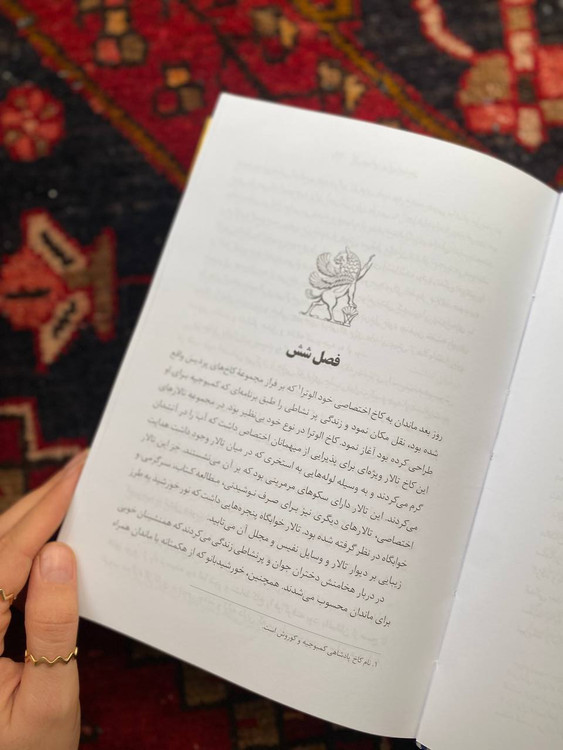 فصل شش
روز بعد ماندان به کاخ اختصاصی خود الوترا۱ که بر فراز مجموعهٔ کاخ‌های پردیس واقع
شده بود، نقل مکان نمود و زندگی پر نشاطی را طبق برنامه‌ای که کمبوجیه برای او
طراحی کرده بود آغاز نمود. کاخ الوترا در نوع خود بی‌نظیر بود. در مجموعه تالارهای
این کاخ تالار ویژه‌ای برای پذیرایی از میهمانان اختصاص داشت که آب را در آتشدان
گرم می‌کردند و به وسیله لوله‌هایی به استخری که در میان تالار وجود داشت هدایت
می‌کردند. این تالار دارای سکوهای مرمرینی بود که بر آن می‌نشستند. جز این تالار
اختصاصی، تالارهای دیگری نیز برای صرف نوشیدنی، مطالعه کتاب، سرگرمی و
خوابگاه در نظر گرفته شده بود. تالار خوابگاه پنجره‌هایی داشت که نور خورشید به طرز
زیبایی بر دیوار تالار و وسایل نفیس و مجلل آن می‌تابید.
در دربار هخامنش دختران جوان و پرنشاطی زندگی می‌کردند که همنشینان خوبی
برای ماندان محسوب می‌شدند. همچنین، خورشیدبانو که از هگمتانه با ماندان همراه
۱. نام کاخ پادشاهی کمبوجیه و کوروش است.